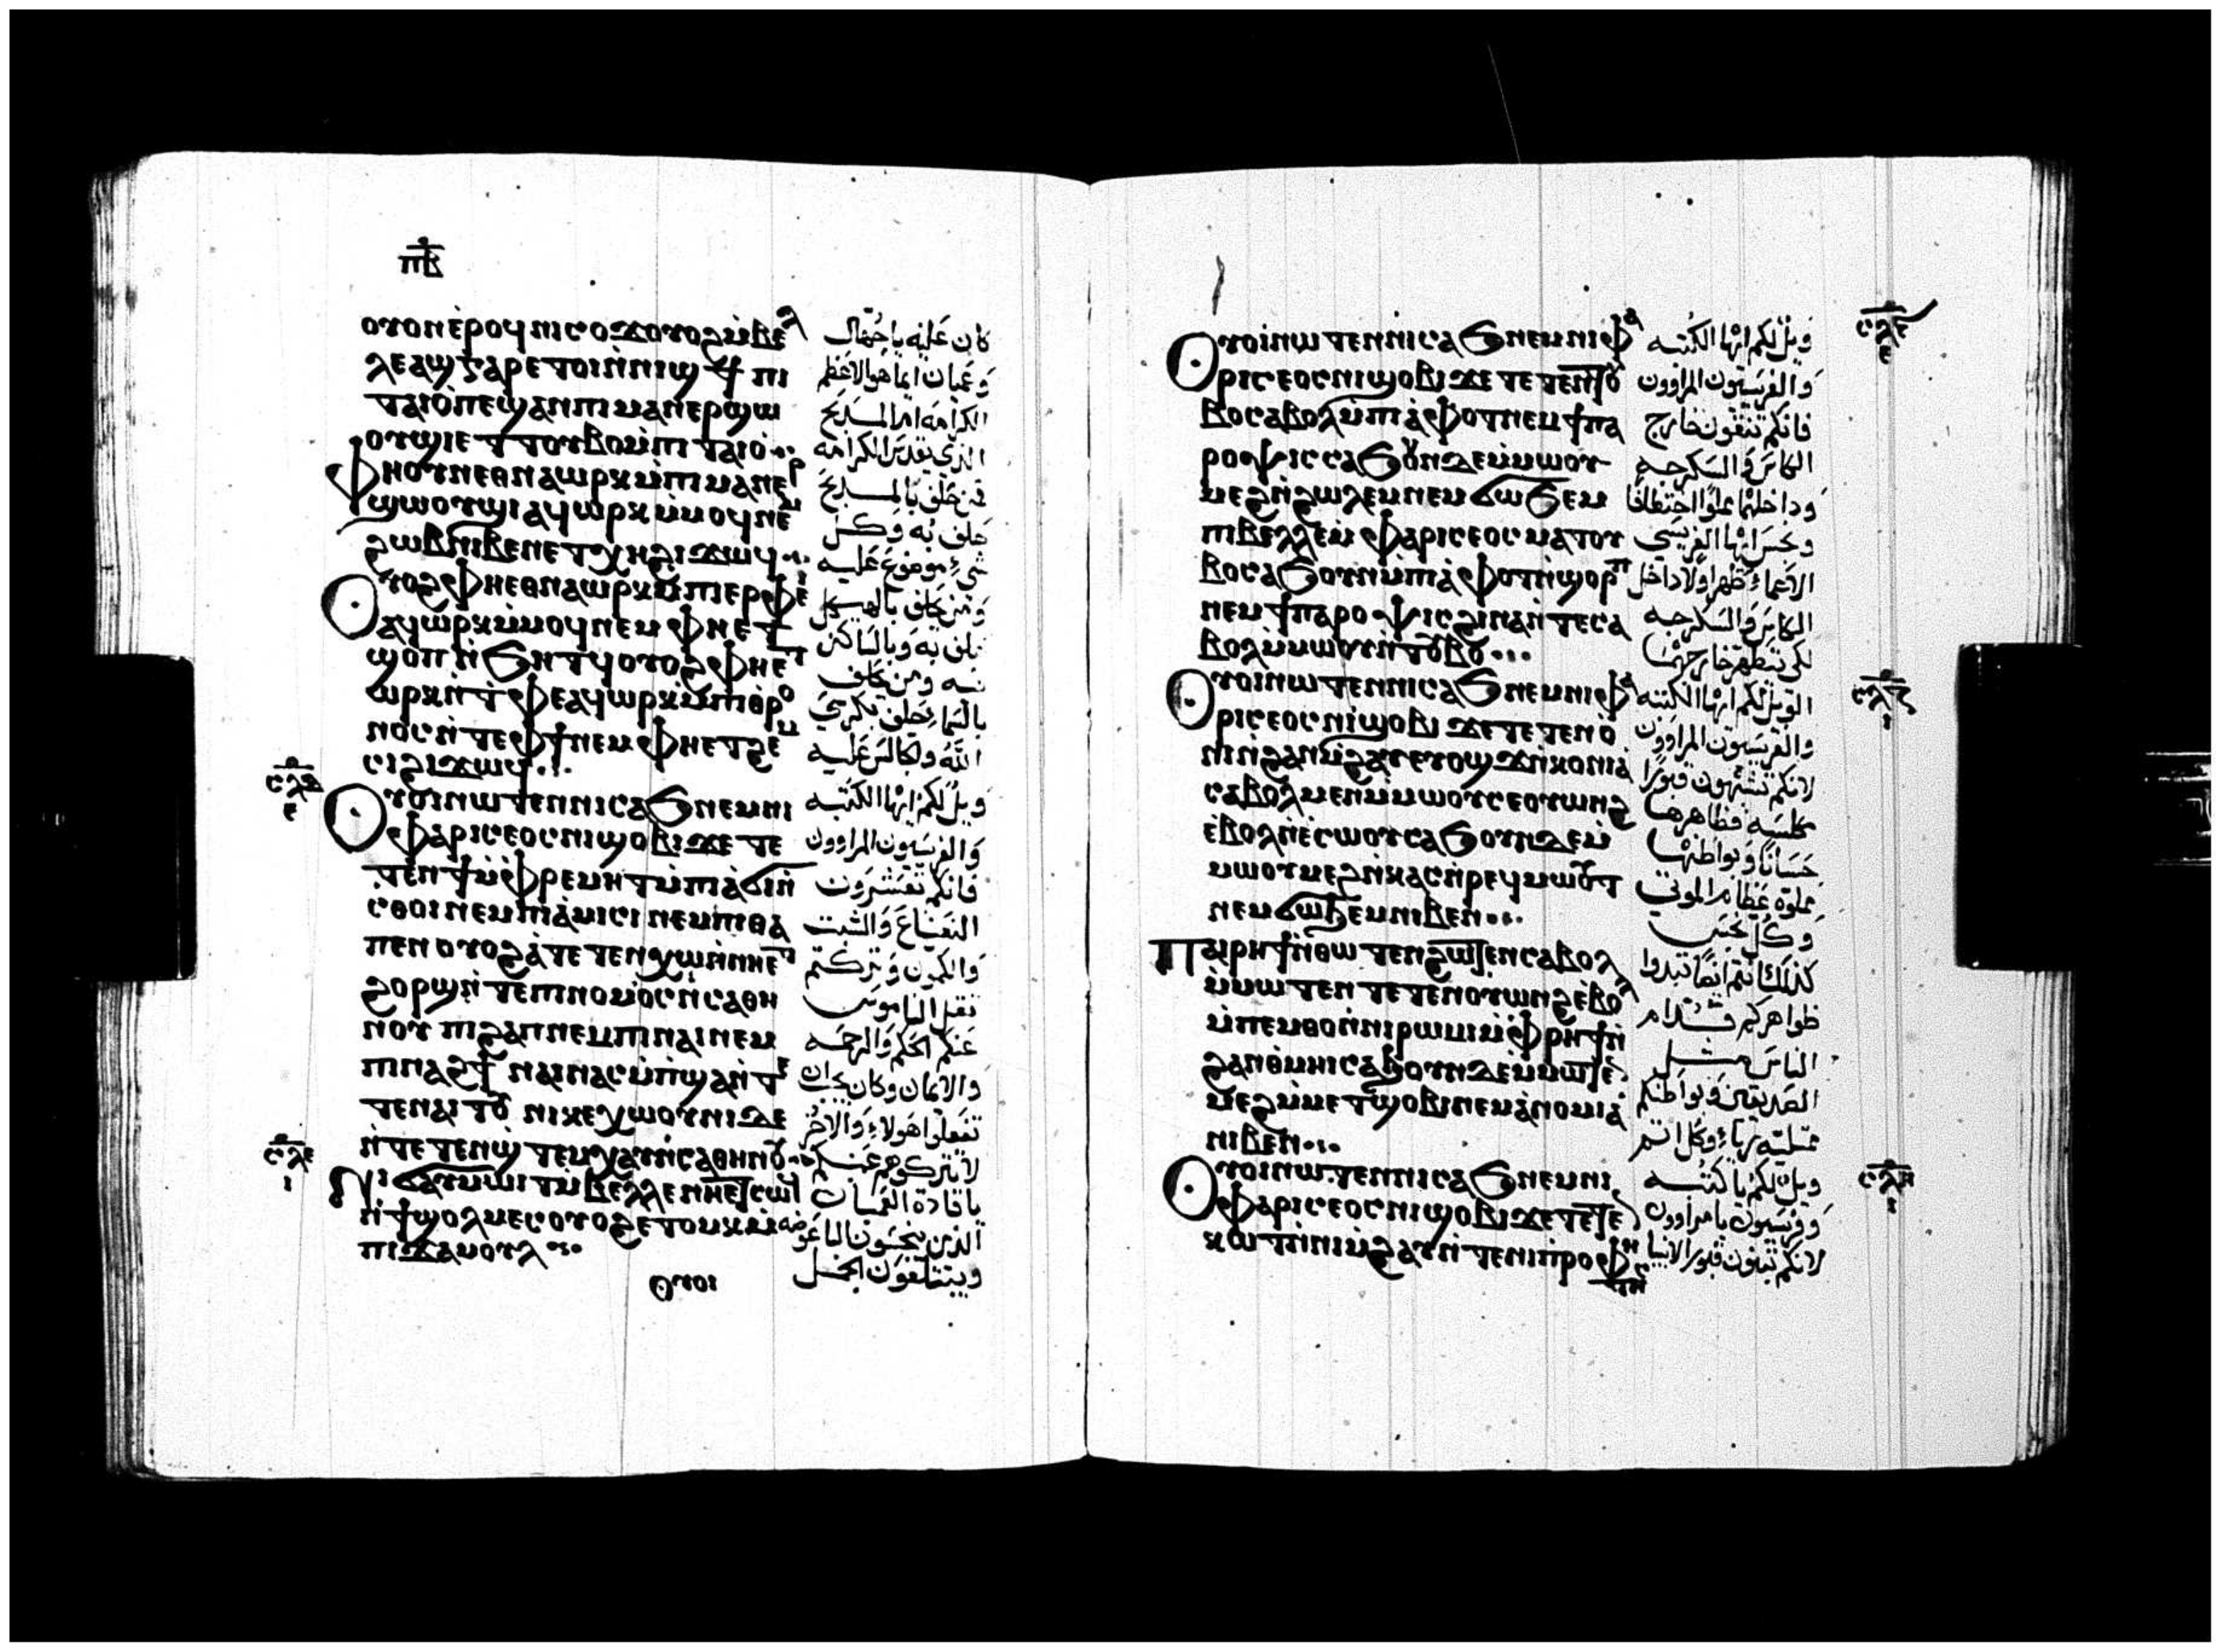 ⲡⲃ
ⲟⲩⲟⲛⲉ̀ⲣⲟϥⲛⲓⲥⲟϫⲟⲩⲟϩⲙ̀ⲃⲉⲗ
ⲗⲉⲁϣⲅⲁⲣⲉⲧⲟⲓⲛ̀ⲛⲓϣϯⲡⲓ
ⲧⲁⲓⲟ̀ⲡⲉϣⲁⲛⲡⲓⲙⲁⲛⲉⲣϣⲱ
ⲟⲩϣⲓⲉⲧⲧⲟⲩⲃⲟⲙ̀ⲡⲓⲧⲁⲓⲟ̀
ⲫⲏⲟⲩⲛⲉⲑⲛⲁⲱⲣⲕⲙ̀ⲡⲓⲙⲁⲛⲉⲣ
ϣⲱⲟⲩϣⲓⲁϥⲱⲣⲕⲙ̀ⲙⲟϥⲛⲉⲙ
ϩⲱⲃⲛⲓⲃⲉⲛⲉⲧⲭⲏϩⲓϫⲱϥ
ⲟⲩⲟϩⲫⲏⲉⲑⲛⲁⲱⲣⲕⲙ̀ⲡⲓⲉⲣⲫⲉⲓ
ⲁϥⲱⲣⲕⲙ̀ⲙⲟϥⲛⲉⲙⲫⲏⲉⲧ
ϣⲟⲡⲛ̀ϧⲏⲧϥⲟⲩⲟϩⲫⲏⲉⲧ
ⲱⲣⲕⲛ̀ⲧⲫⲉⲁϥⲱⲣⲕⲙ̀ⲡⲓⲑⲣⲟ
ⲛⲟⲥⲛ̀ⲧⲉⲫϯⲛⲉⲙⲫⲏⲉⲧϩⲉⲙ
ⲥⲓϩⲓϫⲱϥ
ⲟⲩⲟⲓⲛⲱⲧⲉⲛⲛⲓⲥⲁϧⲛⲉⲙⲛⲓ
ⲫⲁⲣⲓⲥⲉⲟⲥⲛⲓϣⲟⲃⲓϫⲉⲧⲉ
ⲧⲉⲛϯⲙ̀ⲫⲣⲉⲙⲏⲧⲙ̀ⲡⲓⲁ̀ϭⲓⲛ̀
ⲥⲑⲟⲓⲛⲉⲙⲡⲓⲁ̀ⲙⲓⲥⲓⲛⲉⲙⲡⲓⲑⲁ
ⲡⲉⲛⲟⲩⲟϩⲁ̀ⲧⲉⲧⲉⲛⲭⲱⲛ̀ⲛⲏⲉⲧ
ϩⲟⲣϣⲛ̀ⲧⲉⲡⲓⲛⲟⲙⲟⲥⲛ̀ⲥⲁⲑⲏ
ⲛⲟⲩⲡⲓϩⲁⲡⲛⲉⲙⲡⲓⲛⲁⲓⲛⲉⲙ
ⲡⲓⲛⲁϩϯⲛⲁⲓⲛⲁⲥⲙ̀ⲡϣⲁⲛ̀ⲧⲉ
ⲧⲉⲛⲁⲓⲧⲟⲩⲛⲓⲕⲉⲭⲱⲟⲩⲛⲓⲇⲉ
ⲛ̀ⲧⲉⲧⲉⲛϣ̀ⲧⲉⲙⲭⲁⲩⲛ̀ⲥⲁⲑⲏⲛⲟⲩ
ⲛⲓϭⲁⲩⲙⲱⲓⲧⲙ̀ⲃⲉⲗⲗⲉⲛⲏⲉⲧⲥⲱϥ
ⲛ̀ϯϣⲟⲗⲙⲉⲥⲟⲩⲟϩⲉⲧⲟⲙⲕⲙ̀
ⲡⲓϫⲁⲙⲟⲩⲗ
ⲟⲩⲟⲓ
ⲥⲗⲇ
ⲉ
ⲥⲗⲉ
ⲓ
كان عَليه ياجُهّال
وَعَميان ايما هوالاعَظم
الكرامَه امرالمسذبَح
الذي يقدسَ الكرامَه
فمن حَلف بالمسذبَح
حَلف به وَكل
شيءٍ موضوع عَليه
وَمَن حَلف بالهيكل
حَلف به وَبالسَاكن
فيه وَمَن حَلف
بالسَماءِ يَحلف بكرسَي
اللّه وبالجالسَ عَليه
وَيل لكم ايها الكتبَه
وَالفريسَيون المراوون
فانكم تعَشرون
النعَناعَ وَالشبت
وَالكمون وَتركتم
ثقل الناموسَ
عَنكم الحكم وَالرحمَه
والايمان وكان يجب ان
تفعَلوا هَولاءِ وَالاخر
لاتتركوهم عَنكم
ياقادة العميَان
الذين يصَفون الباعَوضَه
ويبتلعَون الجمَل
ⲟⲩⲟⲓⲛⲱⲧⲉⲛⲛⲓⲥⲁϧⲛⲉⲙⲛⲓⲫⲁ
ⲣⲓⲥⲉⲟⲥⲛⲓϣⲟⲃⲓϫⲉⲧⲉⲧⲉⲛⲧⲟⲩ
ⲃⲟⲥⲁⲃⲟⲗⲙ̀ⲡⲓⲁ̀ⲫⲟⲧⲛⲉⲙϯⲡⲁ
ⲣⲟⲯⲓⲥⲥⲁϧⲟⲩⲛⲇⲉⲙ̀ⲙⲱⲟⲩ
ⲙⲉϩⲛ̀ϩⲱⲗⲉⲙⲛⲉⲙϭⲱϧⲉⲙ
ⲡⲓⲃⲉⲗⲗⲉⲙ̀ⲫⲁⲣⲓⲥⲉⲟⲥⲙⲁⲧⲟⲩ
ⲃⲟⲥⲁϧⲟⲩⲛⲙ̀ⲡⲓⲁ̀ⲫⲟⲧⲛ̀ϣⲟⲣⲡ
ⲛⲉⲙϯⲡⲁⲣⲟⲯⲓⲥϩⲓⲛⲁⲛ̀ⲧⲉⲥⲁ
ⲃⲟⲗⲙ̀ⲙⲱⲟⲩⲛ̀ⲧⲟⲩⲃⲟ
ⲟⲩⲟⲓⲛⲱⲧⲉⲛⲛⲓⲥⲁϧⲛⲉⲙⲛⲓⲫⲁ
ⲣⲓⲥⲉⲟⲥⲛⲓϣⲟⲃⲓϫⲉⲧⲉⲧⲉⲛⲟ̀
ⲛⲓⲛ̀ϩⲁⲛⲙ̀ϩⲁⲩⲉⲩⲟϣϫⲛ̀ⲕⲟⲛⲓⲁ
ⲥⲁⲃⲟⲗⲙⲉⲛⲙ̀ⲙⲱⲟⲩⲥⲉⲟⲩⲱⲛϩ
ⲉ̀ⲃⲟⲗⲛⲉⲥⲱⲟⲩⲥⲁϧⲟⲩⲛⲇⲉⲙ̀
ⲙⲱⲟⲩⲙⲉϩⲛ̀ⲕⲁⲥⲛ̀ⲣⲉϥⲙⲱⲟⲩⲧ
ⲛⲉⲙϭⲱϧⲉⲙⲛⲓⲃⲉⲛ
ⲡⲁⲓⲣⲏϯⲛ̀ⲑⲱⲧⲉⲛϩⲱⲧⲉⲛⲥⲁⲃⲟⲗ
ⲙ̀ⲙⲱⲧⲉⲛⲧⲉⲧⲉⲛⲟⲩⲱⲛϩⲉ̀ⲃⲟⲗ
ⲙ̀ⲡⲉⲙⲑⲟⲛ̀ⲛⲓⲣⲱⲙⲓⲙ̀ⲫⲣⲏϯⲛ̀
ϩⲁⲛⲑ̀ⲙⲏⲓⲥⲁϧⲟⲩⲛⲇⲉⲙ̀ⲙⲱⲧⲉⲛ
ⲙⲉϩⲙ̀ⲙⲉⲧϣⲟⲃⲓⲛⲉⲙⲁ̀ⲛⲟⲙⲓⲁ
ⲛⲓⲃⲉⲛ
ⲟⲩⲟⲓⲛⲱⲧⲉⲛⲛⲓⲥⲁϧⲛⲉⲙⲛⲓ
ⲫⲁⲣⲓⲥⲉⲟⲥⲛⲓϣⲟⲃⲓϫⲉⲧⲉⲧⲉⲛ
ⲕⲱⲧⲛ̀ⲛⲓⲙ̀ϩⲁⲩⲛ̀ⲧⲉⲛⲓⲡ̀ⲣⲟⲫⲏ
ⲧⲏⲥ
وَيل لكم ايها الكتبَه
وَالفريسَيون المراوون
فانكم تنقون خارج
الكاسَ وَالسَكرجه
وَداخلهما مملوًا اختطافًا
وَنجسَ ايها الفريسَي
الاعمَاءِ طهر اولًا داخل
الكاسَ وَالسَكرجه
لكي يتطهر خارجهمَا
الويل لكم ايها الكتبه
والفريسَيون المراوون
لانكم تشبهون قبورًا
مكلسَه فظاهرها
حَسَانًا وَبواطنها
مملوة عَظام الموتي
وَكل نجسَ
كذلك انتم ايضًا تبدوا
ظواهركم قدام
الناسَ مثل
الصَديقين وَبواطنكم
ممتليَه رياءً وكل اثم
ويل لكم يا كتبه
وَفريسَيون يامراوون
لانكم تبنون قبور الانبيا
ⲥⲗⲋ
ⲉ
ⲥⲗⲍ
ⲓ
ⲥⲗⲏ
ⲓ